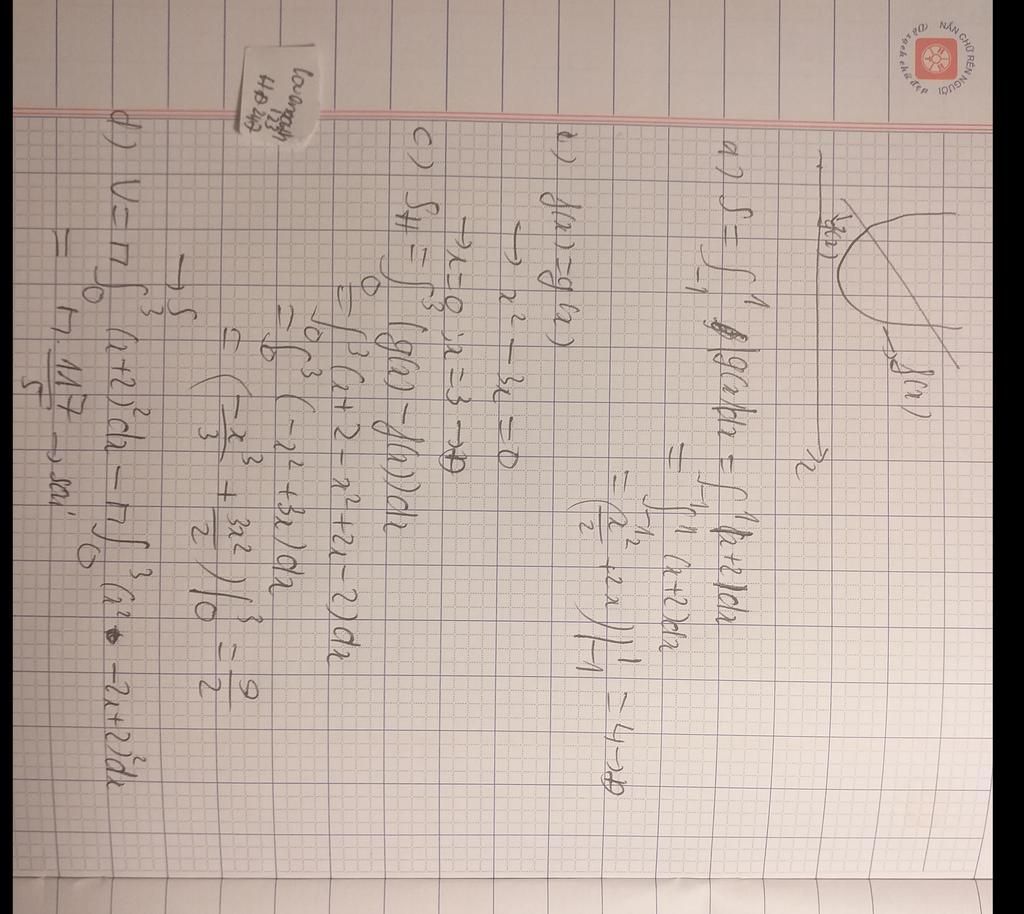 NẮN CHỮ RÈN NGƯỜI
g(x)
f(x)
x
a) S = ∫_{-1}^{1} |g(x)|dx = ∫_{-1}^{1} |x+2|dx
= ∫_{-1}^{1} (x+2)dx
= (x²/2 + 2x)|_{-1}^{1} = 4 → Đ
b) f(x) = g(x)
→ x² - 3x = 0
→ x = 0; x = 3 → Đ
c) S_H = ∫_0^3 (g(x) - f(x))dx
= ∫_0^3 (x + 2 - x² + 2x - 2)dx
= ∫_0^3 (-x² + 3x)dx
= (-x³/3 + 3x²/2)|_0^3 = 9/2
→ S
d) V = π∫_0^3 (x+2)²dx - π∫_0^3 (x² - 2x + 2)²dx
= π.117/5 → sai